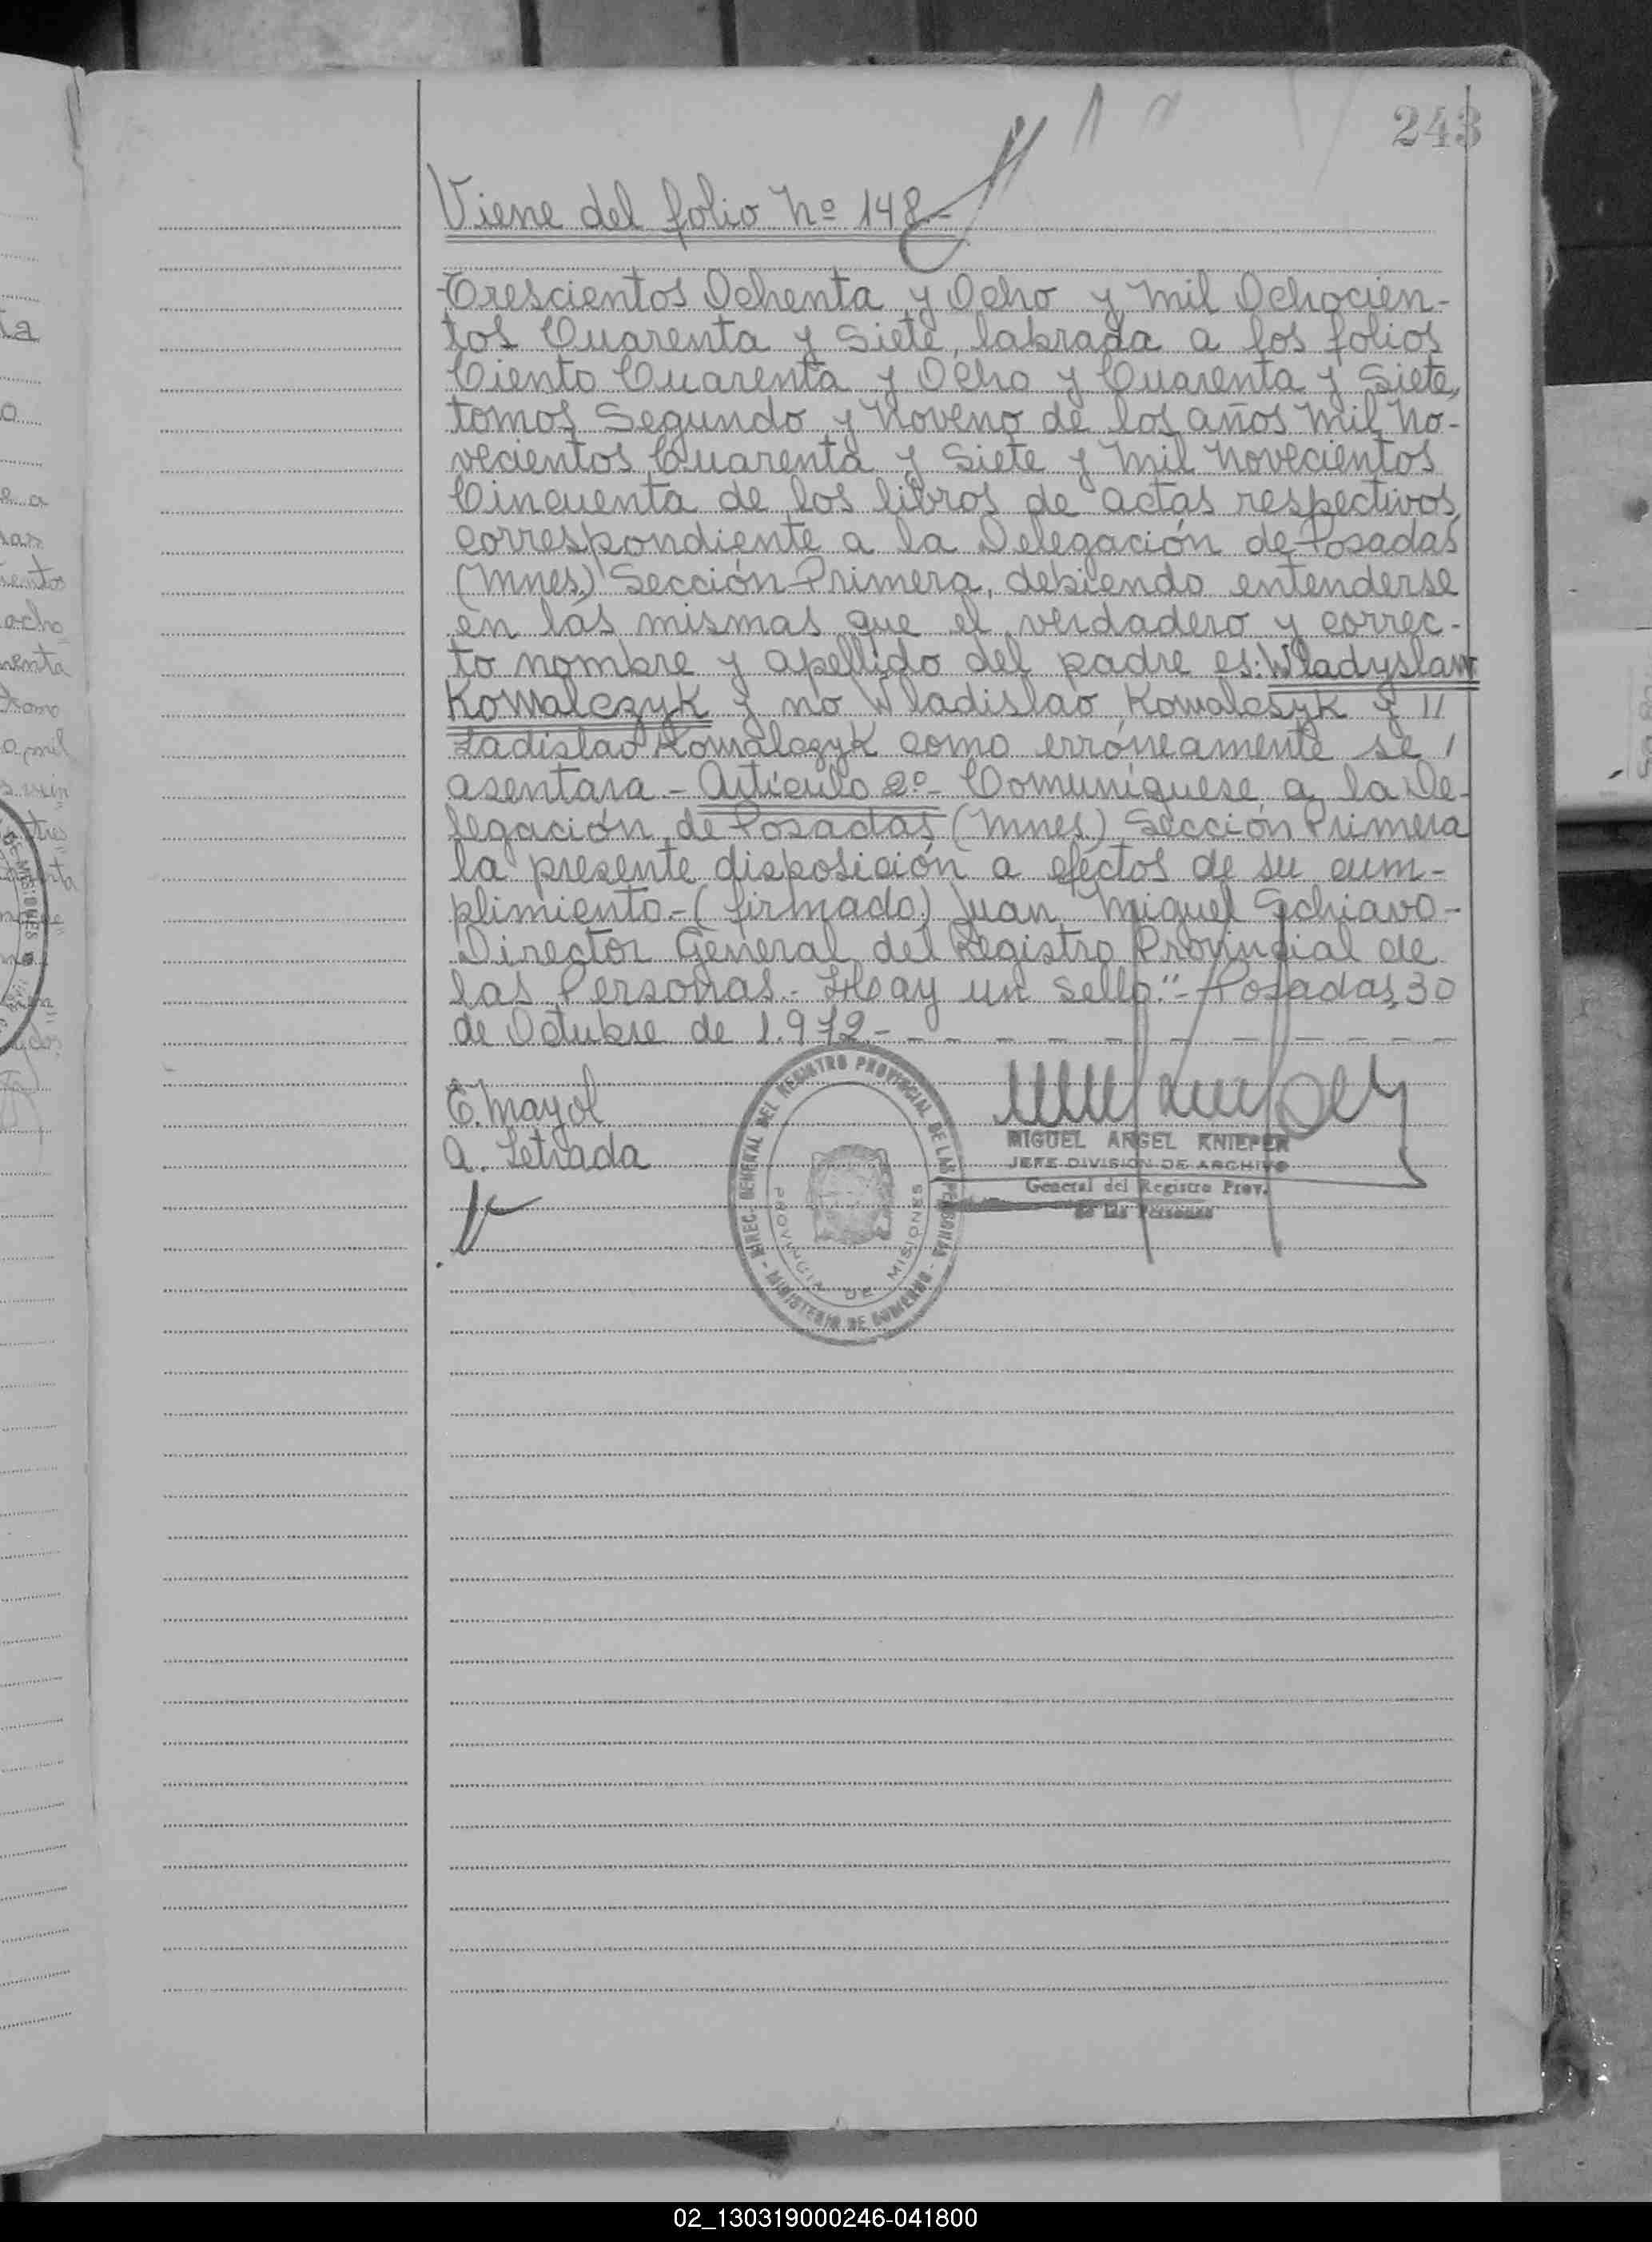 243
Viene del folio Nº 148.-
Trescientos Ochenta y Ocho y Mil Ochocien-
tos Cuarenta y Siete, labrada a los folios
Ciento Cuarenta y Ocho y Cuarenta y Siete,
tomos Segundo y Noveno de los años Mil No-
vecientos Cuarenta y Siete y Mil Novecientos
Cincuenta de los libros de actas respectivos,
correspondiente a la Delegación de Posadas
(Mnes.) Sección Primera, debiendo entenderse
en las mismas que el verdadero y correc-
to nombre y apellido del padre es: Wladyslaw
Kowalczyk y no Wladislao Kowalcsyk y //
Ladislao Kowalczyk como erróneamente se /
asentara.- Artículo 2º- Comuníquese a la De-
legación de Posadas (Mnes.) Sección Primera
la presente disposición a efectos de su cum-
plimiento.- (firmado) Juan Miguel Schiavo-
Director General del Registro Provincial de
las Personas.- Hay un sello."- Posadas, 30
de Octubre de 1.972.-
E. Mayol
a. Letrada
DIREC. GENERAL DEL REGISTRO PROVINCIAL DE LAS PERSONAS - MINISTERIO DE GOBIERNO -
PROVINCIA DE MISIONES
MIGUEL ANGEL KNIEPER
JEFE DIVISION DE ARCHIVO
General del Registro Prov.
de las Personas
02_130319000246-041800